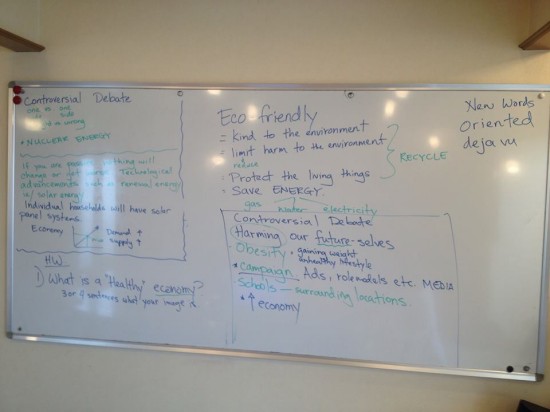 Controversial Debate
one vs. one
side side
right vs. wrong
* NUCLEAR ENERGY
If you are positive nothing will
change or get worse. Technological
advancements such as renewal energy
ie/ solar energy
Individual households will have solar
panel systems.
Economy Demand ↑
supply ↑
HW
1) What is a "Healthy" economy?
3 or 4 sentences what your image is
Eco-friendly
= Kind to the environment
= limit harm to the environment
reduce
= Protect the living things
= Save ENERGY
gas water electricity
RECYCLE
Controversial Debate
Harming our future-selves
Obesity - gaining weight
unhealthy lifestyle
* Campaign - Ads, rolemodels etc. MEDIA
Schools — surrounding locations.
* ↑ economy
New Words
Oriented
deja vu